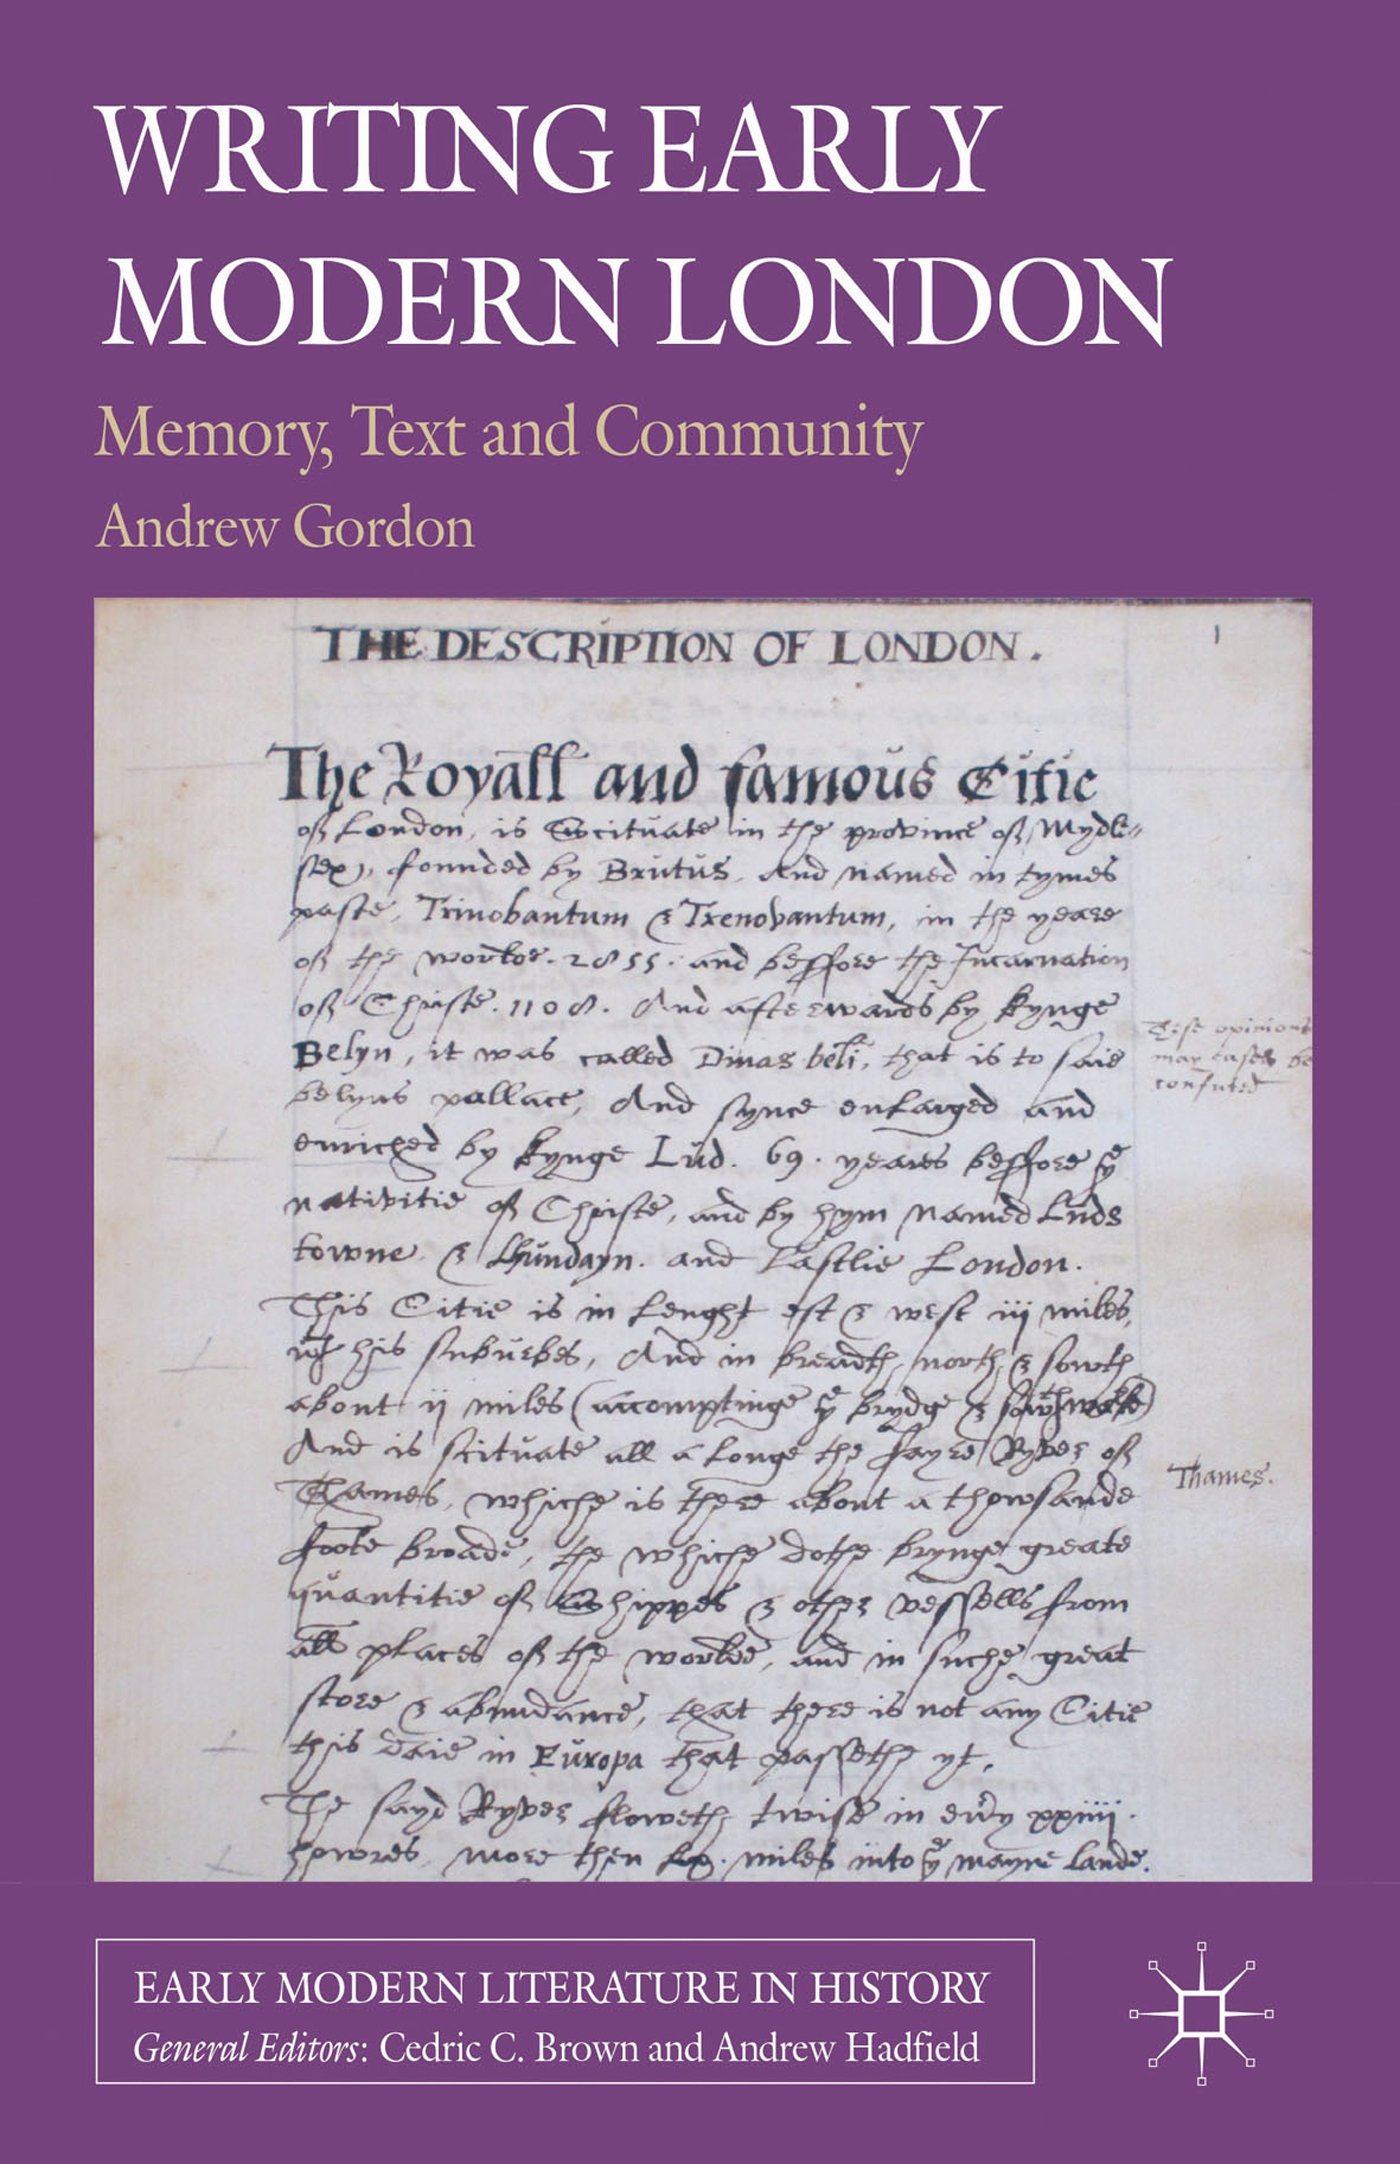 WRITING EARLY
MODERN LONDON
Memory, Text and Community
Andrew Gordon
THE DESCRIPTION OF LONDON.
1
The Royall and famous Citie
of London, is Scituate in the province of Mydle-
sex, founded by Brutus, And named in tymes
paste, Trinobantum & Trenovantum, in the yeare
of the worlde. 2855. and beffore the Incarnation
of Christe. 1108. And afterwards by kynge
Belyn, it was called Dinas beli, that is to saie
belyns pallace, And synce enlarged and
enriched by kynge Lud. 69. yeares beffore ye
nativitie of Christe, and by hym named Luds
towne & Lhundayn. and lastlie London.
This Citie is in lenght est & west iij miles,
wt his suburbes, And in breadth, north & sowth
about ij miles (accomptinge ye brydge & sowthwarke)
And is scituate all a longe the fayre Ryver of
Thames, whiche is there about a thowsande
foote broade, the whiche dothe brynge greate
quantitie of Shippes & other vessells from
all places of the worlde, and in suche great
store & abundance, that there is not any Citie
this daie in Europa that passethe yt.
The sayd Ryver floweth twise in every xxiiii.
howres, more then lx. miles into ye mayne lande.
These opinions
may easely be
confuted
Thames.
EARLY MODERN LITERATURE IN HISTORY
General Editors: Cedric C. Brown and Andrew Hadfield